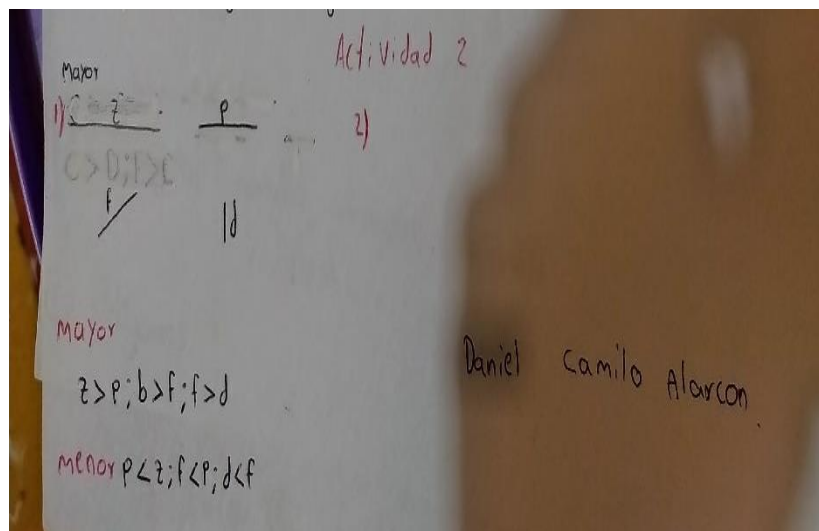 Actividad 2
Mayor
1) z p
2)
C>D;F>C
f
d
Mayor
z>p;b>f;f>d
menor p<z;f<p;d<f
Daniel Camilo Alarcon.